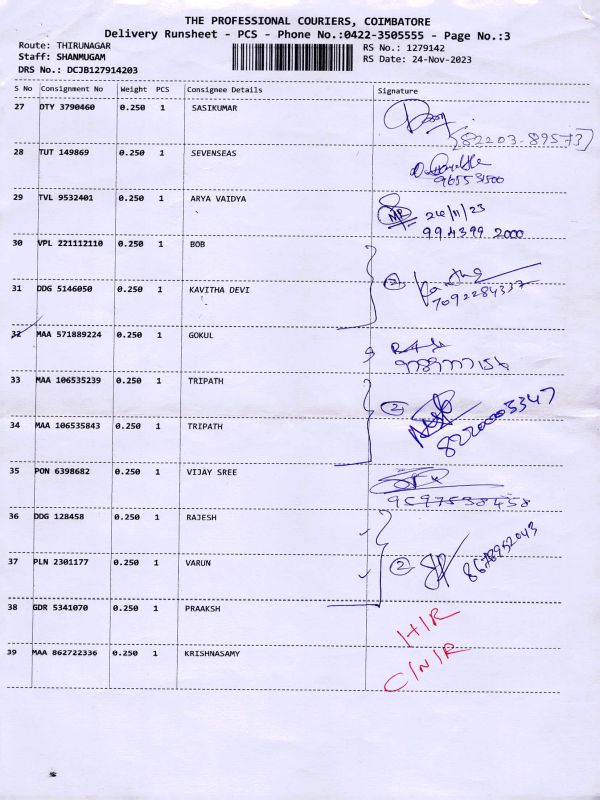 THE PROFESSIONAL COURIERS, COIMBATORE
Delivery Runsheet - PCS - Phone No.:0422-3505555 - Page No.:3
Route: THIRUNAGAR
Staff: SHANMUGAM
DRS No.: DCJB127914203
RS No.: 1279142
RS Date: 24-Nov-2023
S No Consignment No Weight PCS Consignee Details Signature
27 DTY 3790460 0.250 1 SASIKUMAR
[82203-89573]
28 TUT 149869 0.250 1 SEVENSEAS
965531500
29 TVL 9532401 0.250 1 ARYA VAIDYA
MP 24/11/23
994399 2000
30 VPL 221112110 0.250 1 BOB
31 DDG 5146050 0.250 1 KAVITHA DEVI
2
7092284337
32 MAA 571889224 0.250 1 GOKUL
33 MAA 106535239 0.250 1 TRIPATH
34 MAA 106535843 0.250 1 TRIPATH
2
8220005347
35 PON 6398682 0.250 1 VIJAY SREE
9597538458
36 DDG 128458 0.250 1 RAJESH
37 PLN 2301177 0.250 1 VARUN
2
8678952043
38 GDR 5341070 0.250 1 PRAAKSH
H/R
39 MAA 862722336 0.250 1 KRISHNASAMY
C/N/R